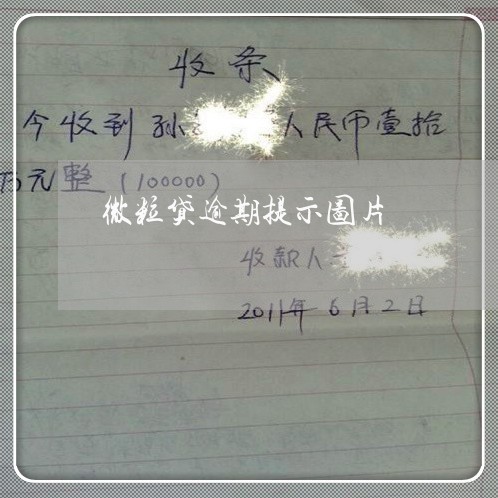 收条
今收到孙 人民币壹拾
万元整(100000)
微粒贷逾期提示图片
收款人
2011年6月2日